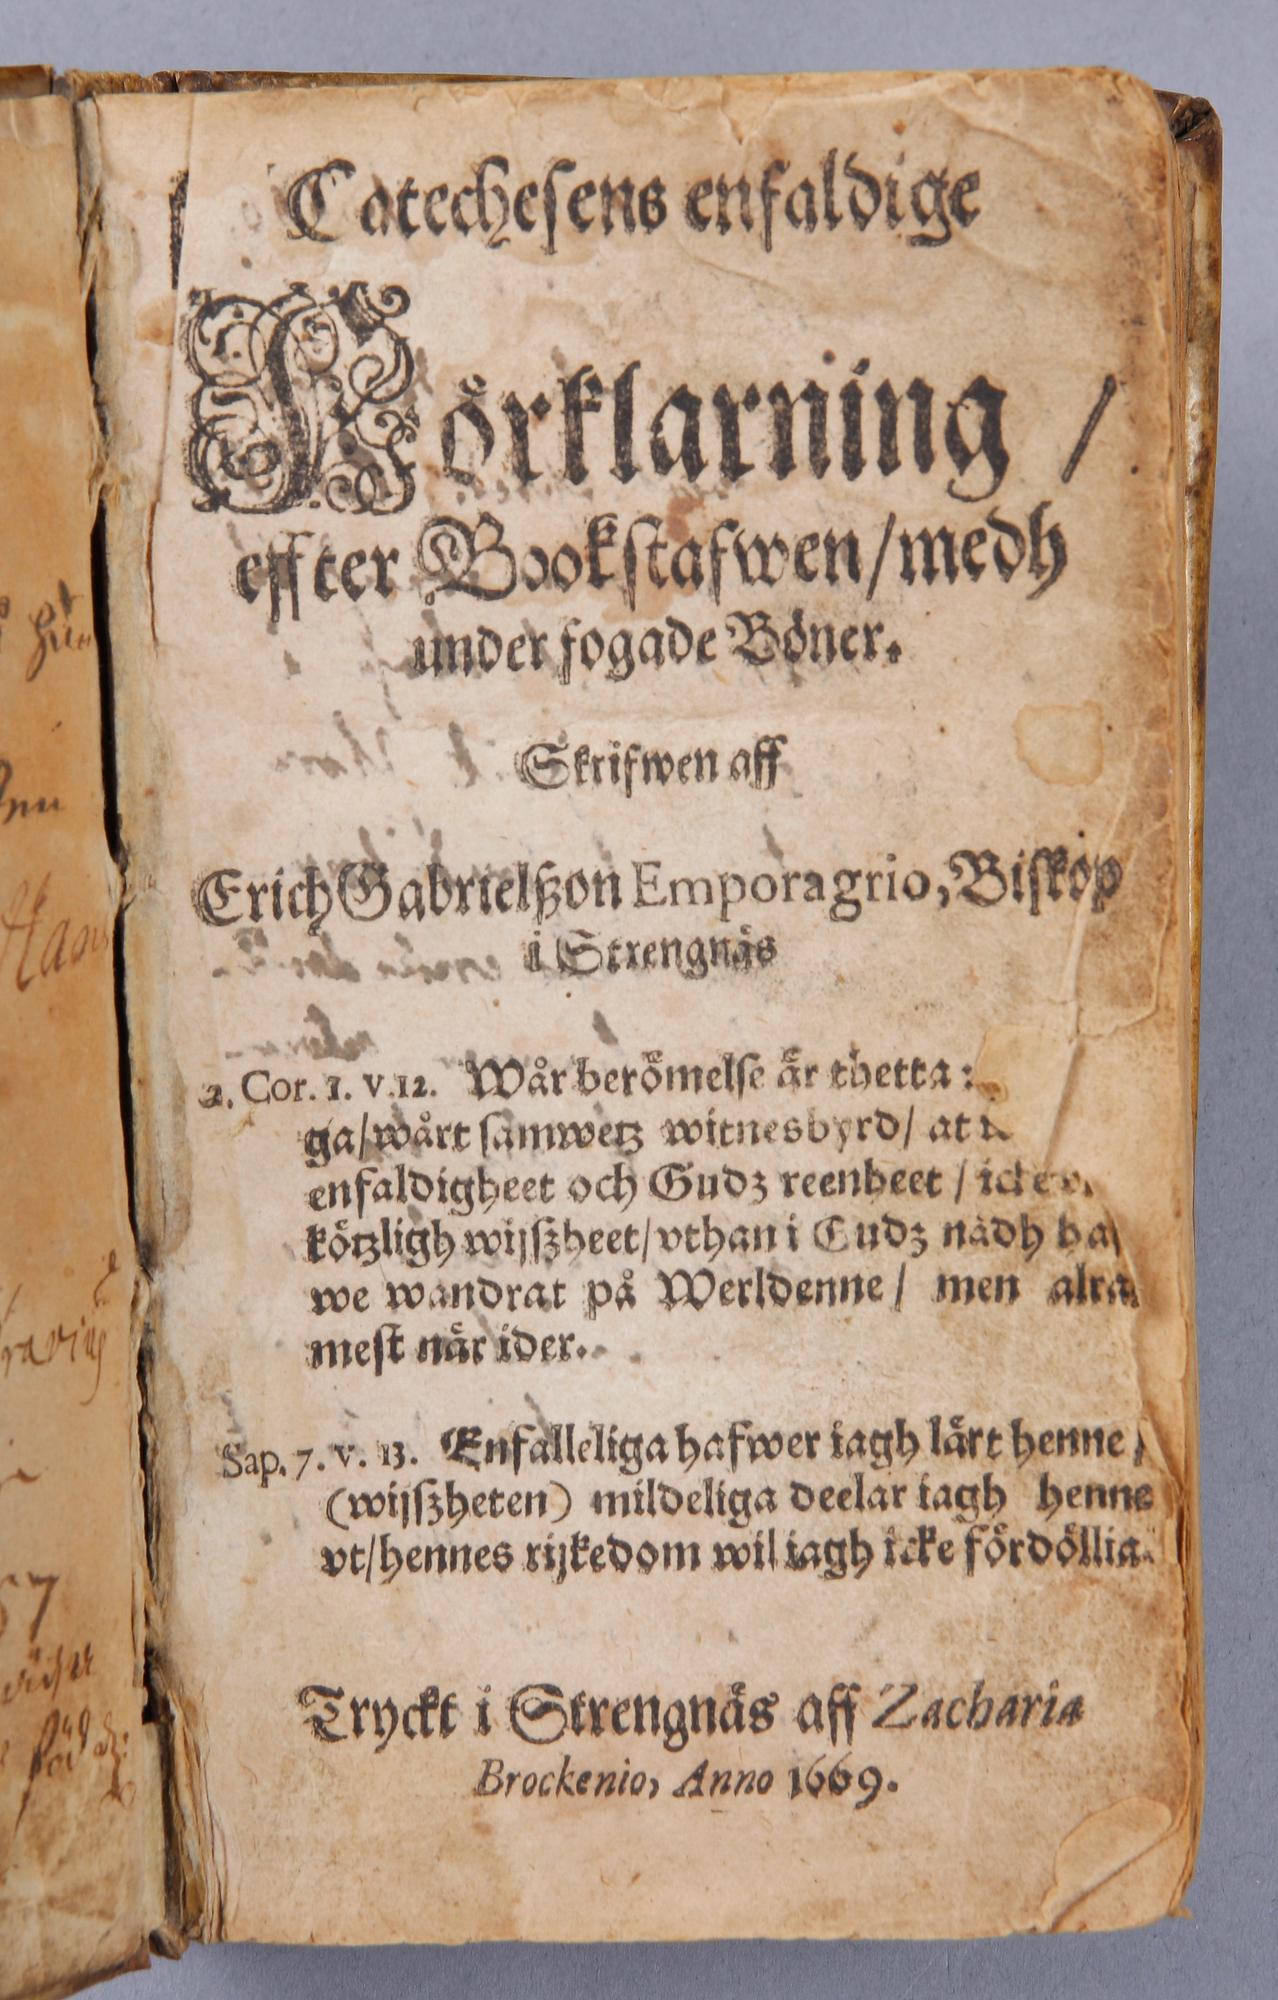 Catechesens enfaldige
Förklarning /
effter Bookstafwen/medh
under fogade Böner.
Skrifwen aff
Erich Gabrielßon Emporagrio, Biskop
i Strengnäs
2. Cor. 1. v.12. Wår berömelse är thetta :
ga/wårt samwetz witnesbyrd/ at
enfaldigheet och Gudz reenheet /
kötzligh wijszheet/vthan i Gudz nådh ha
we wandrat på Werldenne/ men alra
mest när ider.
Sap. 7. v. 13. Enfalleliga hafwer iagh lärt henne /
(wijszheten) mildeliga deelar iagh henne
vt/hennes rijkedom wil iagh icke fördöllia.
Tryckt i Strengnäs aff Zacharia
Brockenio, Anno 1669.